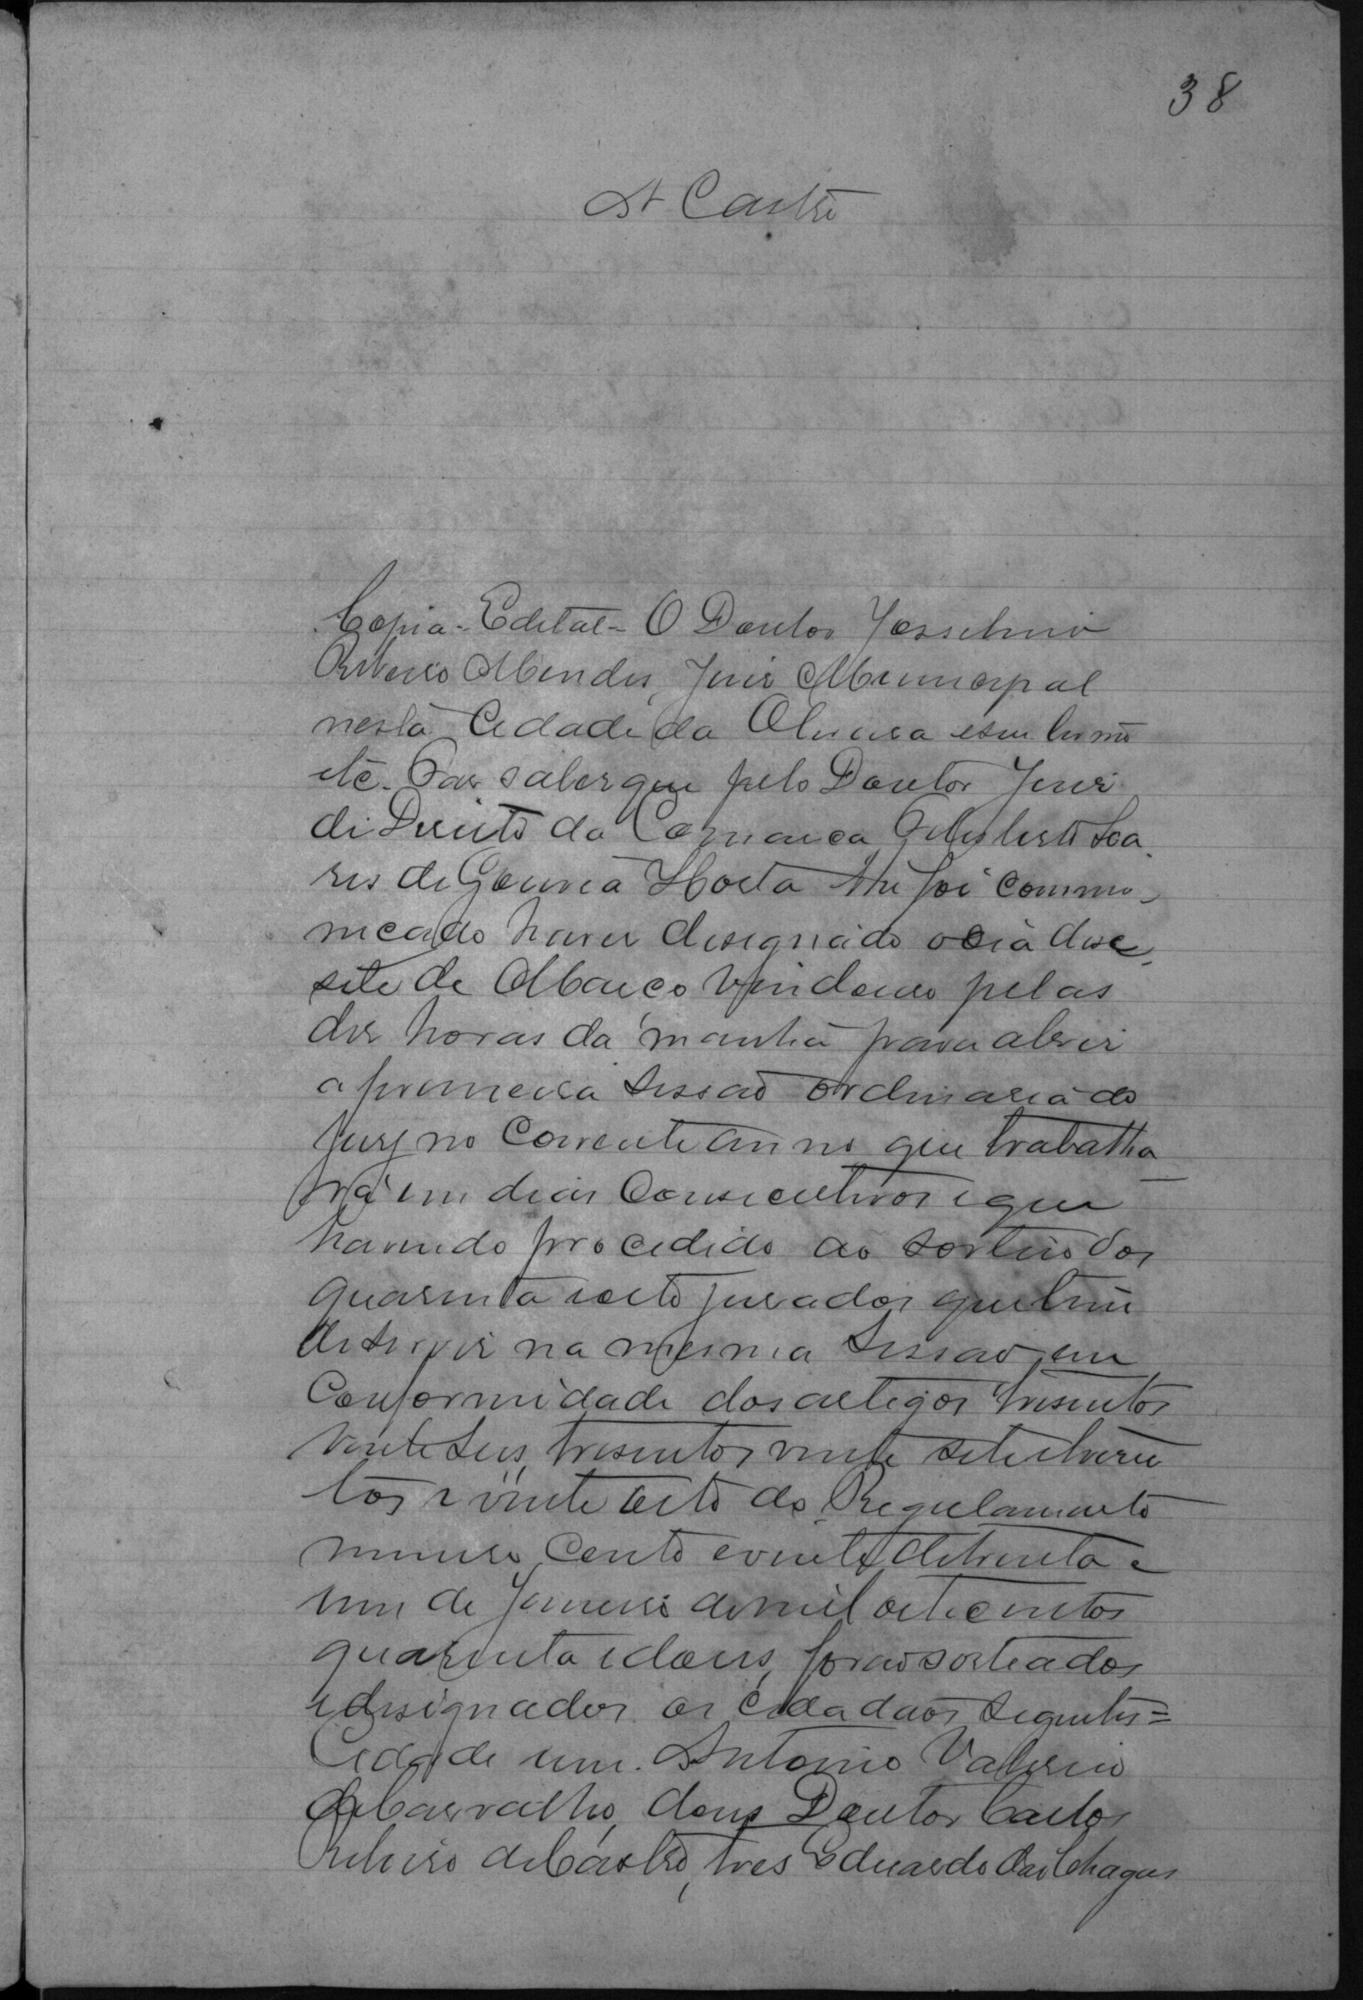 38
A Castro
Copia - Edital - O Doutor Josselino
Ribeiro Mendes, Juiz Municipal
nesta Cidade da Oliveira e seu termo
etc. Faz saber que pelo Doutor Juiz
de Direito da Comarca Soa
res de Gouvea Horta me foi commu
nicado haver designado o dia deze
sete de Março vindouro pelas
dez horas da manhã para abrir
a primeira sessão ordinaria do
jury no corrente anno que trabalha
rá em dias consecutivos e que
havendo procedido ao sorteio dos
quarenta e oito jurados que tem
de servir na mesma sessão em
conformidade dos artigos trisentos
vinte seis, trisentos vinte sete e trezen
tos e vinte oito do Regulamento
numero cento e vinte de trinta e
um de Janeiro de mil oitocentos
quarenta e dous, forão sorteados
e designados os cidadãos seguintes =
Cidade um. Antonio Valerio
de Carvalho, dous Doutor Carlos
Ribeiro de Castro, tres Eduardo das Chagas